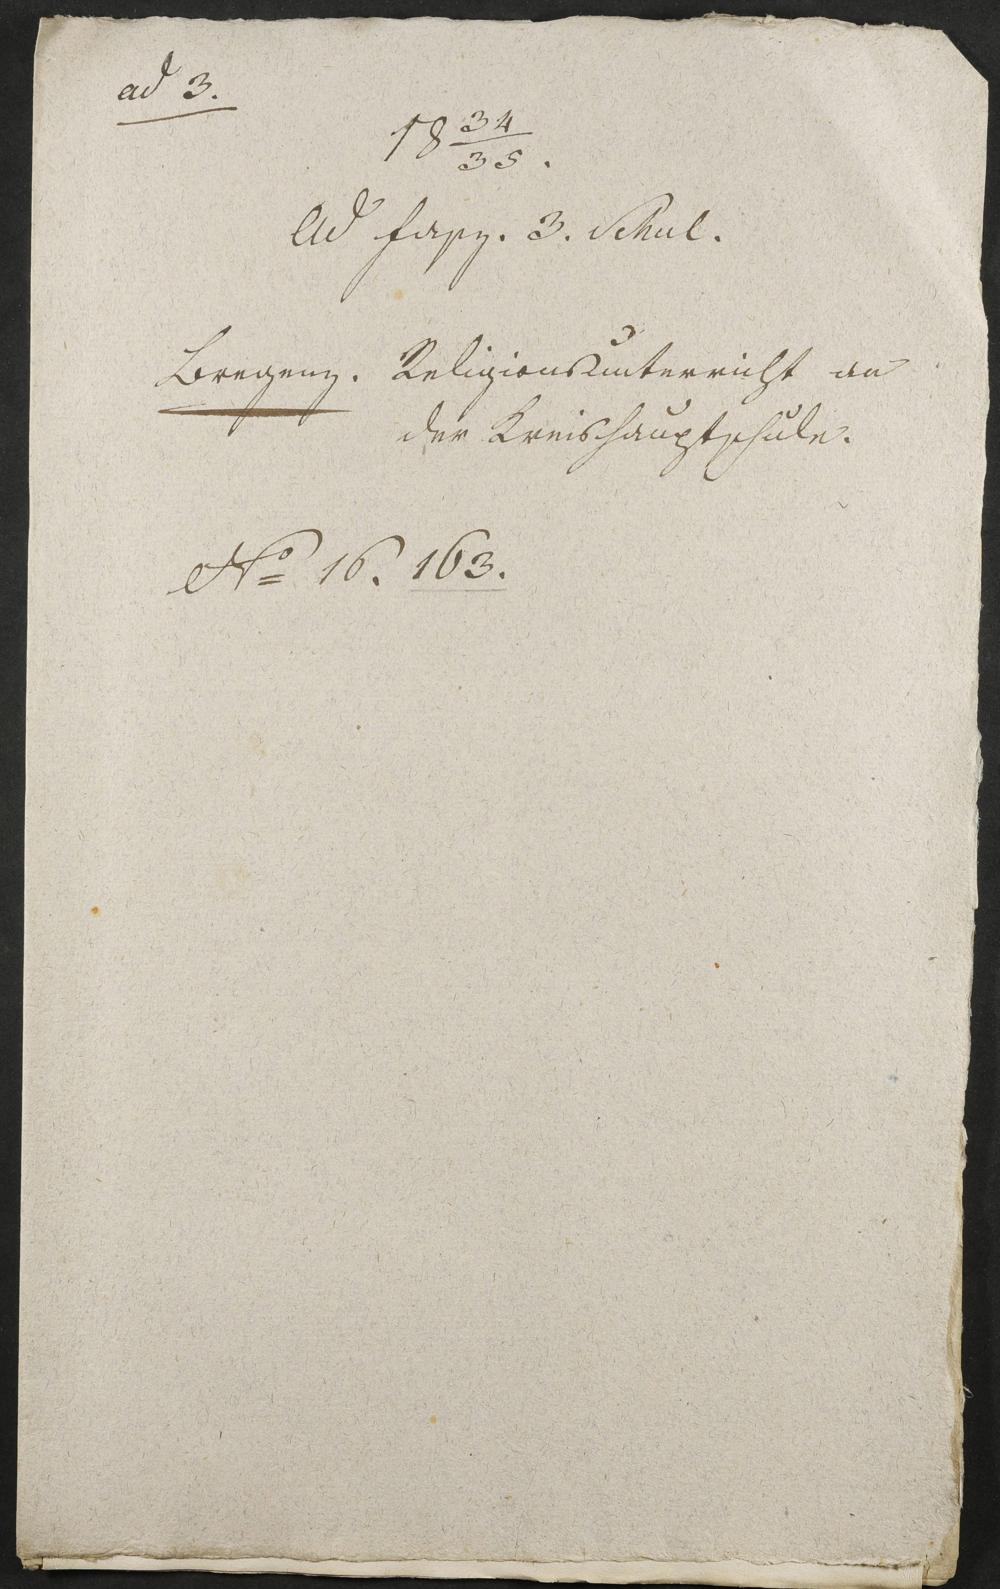 ad 3.
18 34/35.
Ad Fasz. 3. Schul.
Bregenz. Religionsunterricht an
der Kreishauptschule.
No 16. 163.